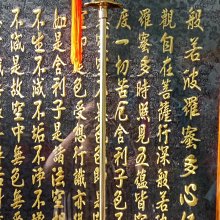 般若波羅蜜多心經
觀自在菩薩行深般若
羅蜜多時照見五蘊皆
度一切苦厄舍利子色
是色受想行識亦
如是舍利子是諸法空
不生不滅不垢不淨不
不滅是故空中無色無